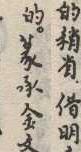 的稍有借明
的。篆承金文